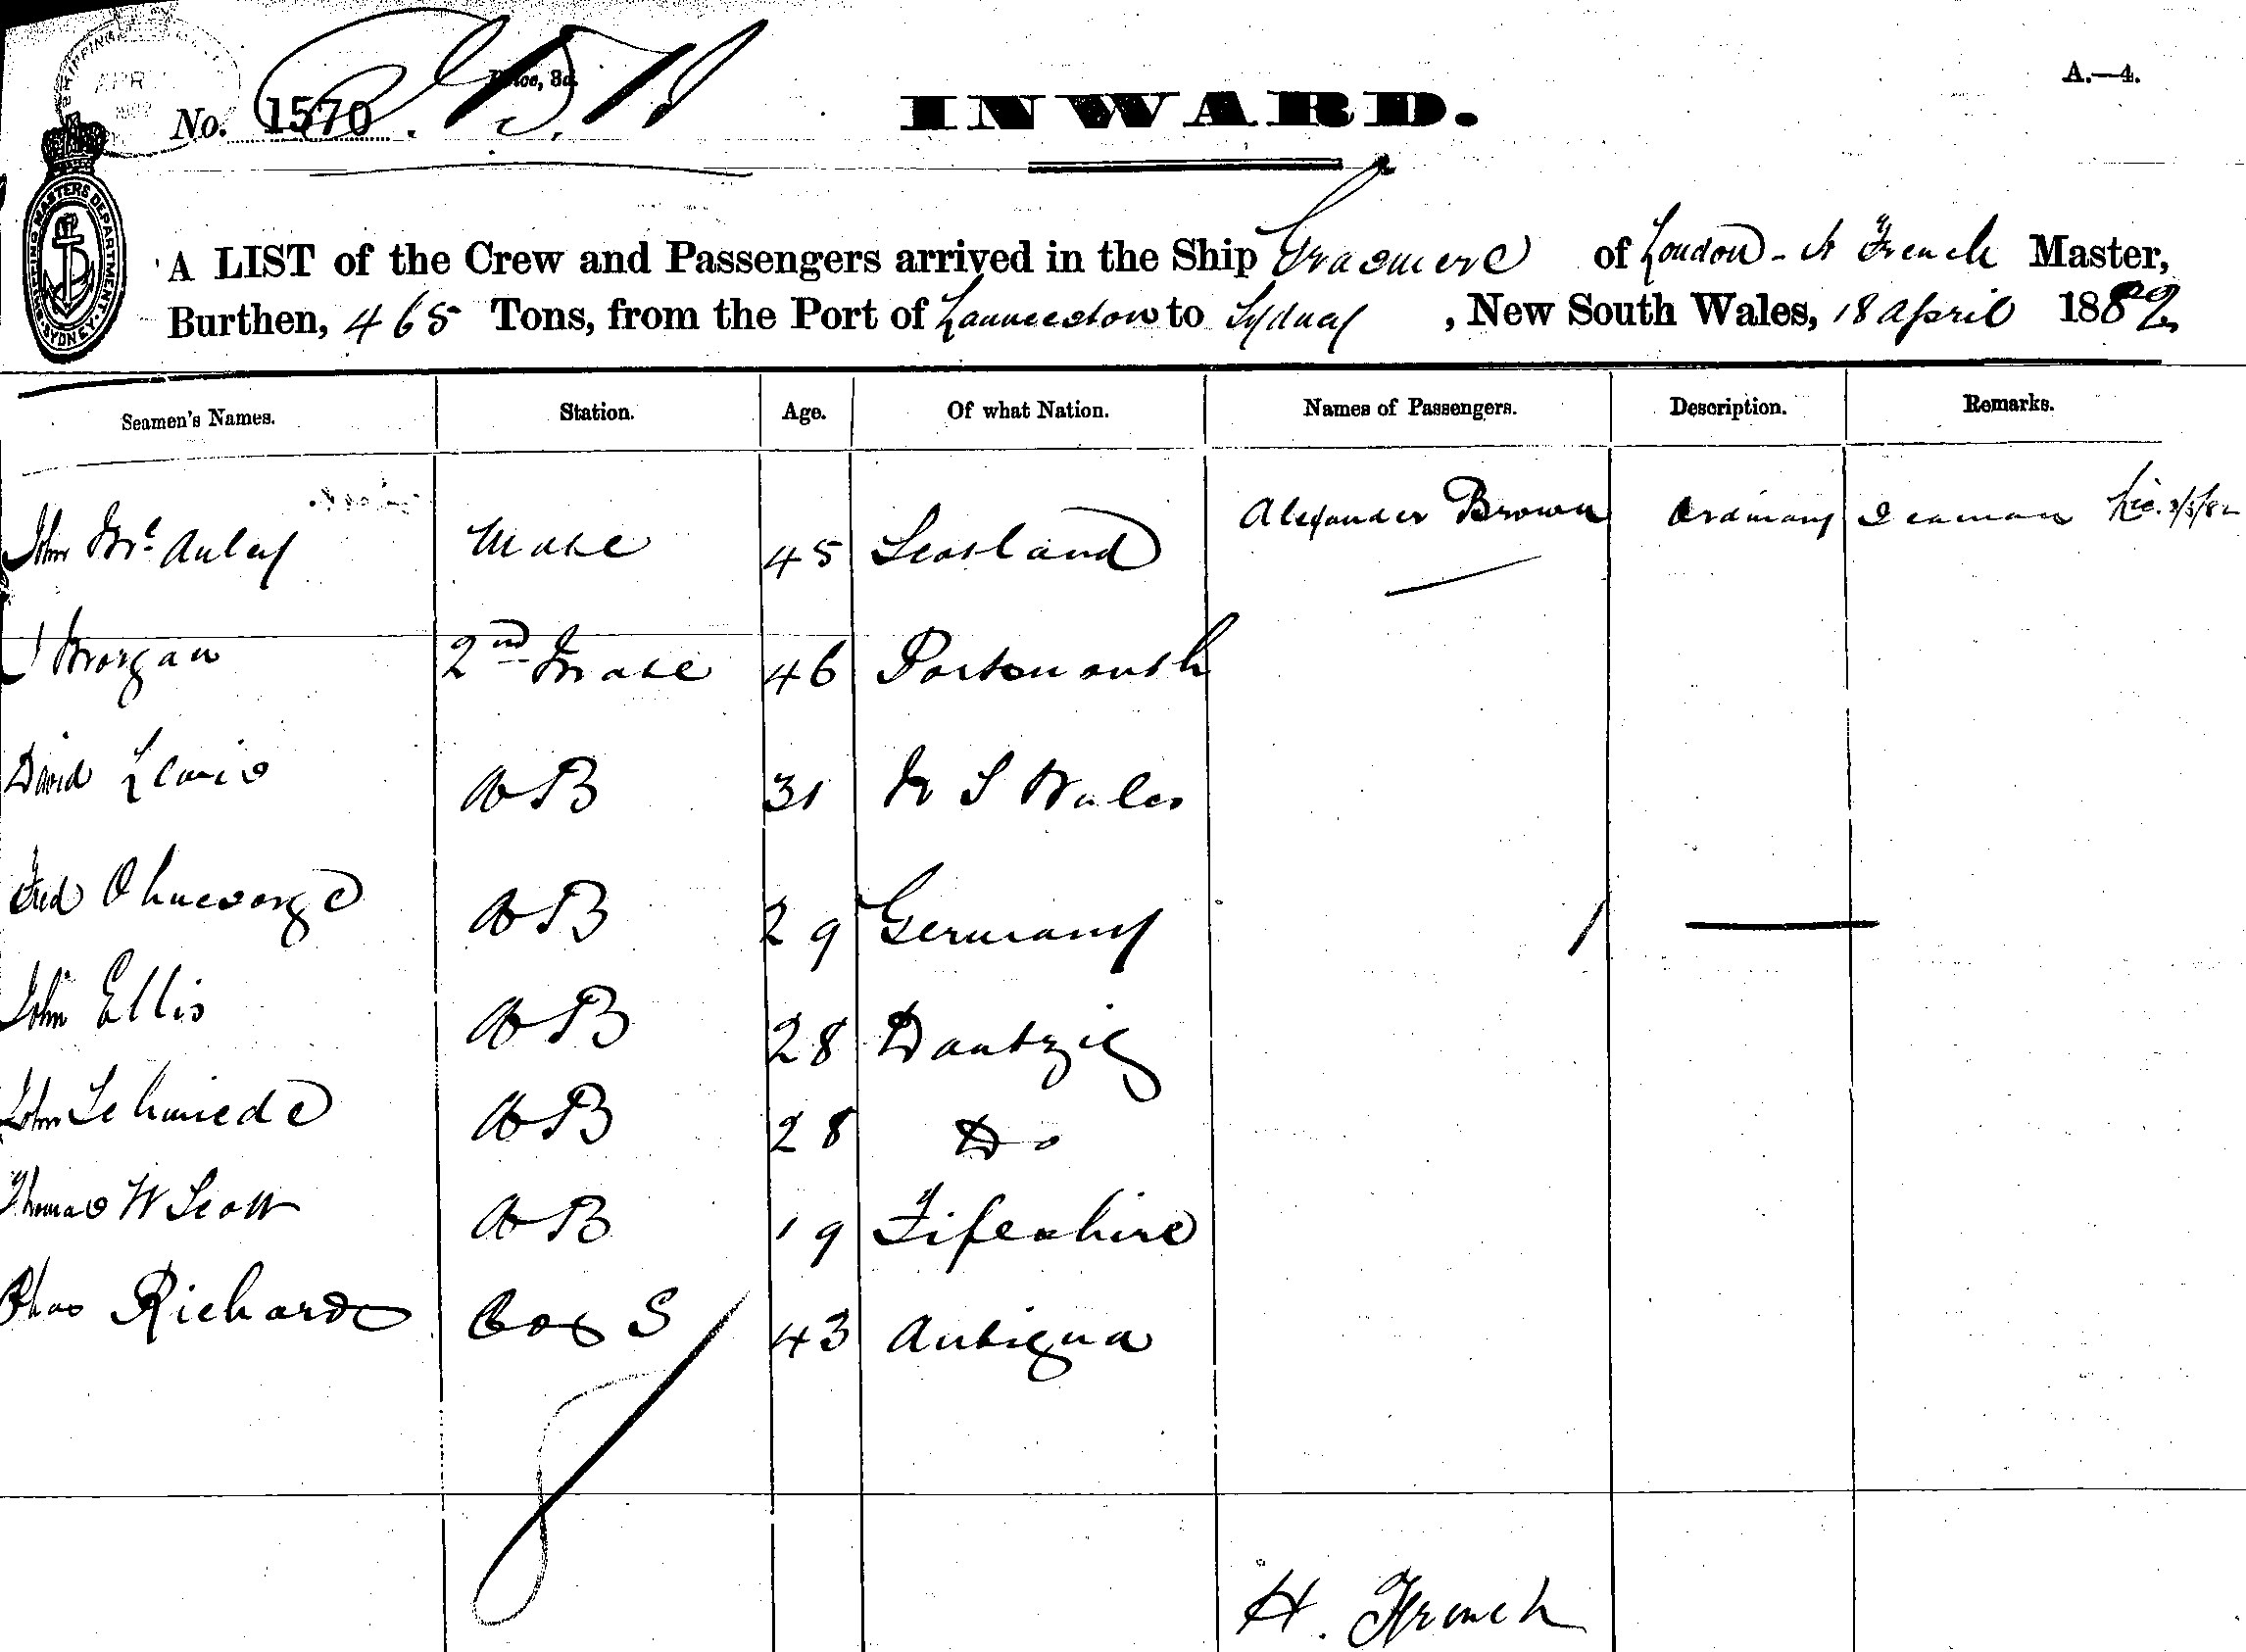 SHIPPING
APR
Price, 3d.
A.—4.
No. 1570.
INWARD.
SHIPPING MASTERS DEPARTMENT SYDNEY
A LIST of the Crew and Passengers arrived in the Ship Grasmere of London - H French Master,
Burthen, 465 Tons, from the Port of Launceston to Sydney, New South Wales, 18 April 1882
Seamen's Names. Station. Age. Of what Nation. Names of Passengers. Description. Remarks.
John McAuley Mate 45 Scotland Alexander Brown Ordinary Seaman
J Morgan 2nd Mate 46 Portsmouth
David Lewis AB 31 N S Wales
Fred AB 29 Germany
John Ellis AB 28 Dantzig
John Schmiede AB 28 Do
Thomas W Scott AB 19 Fifeshire
Chas Richards Cox S 43 Antigua
H. French